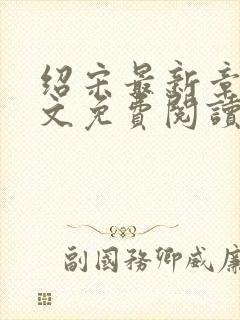 绍宋最新章
文免費閱讀
副國務卿威廉